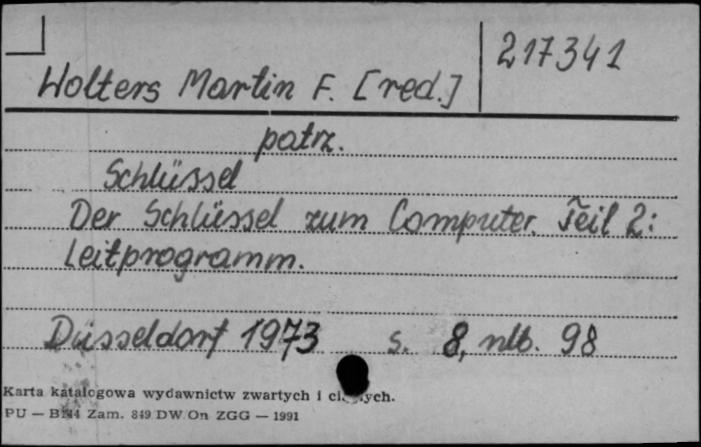 217341
Wolters Martin F. [red.]
patrz.
Schlüssel
Der Schlüssel zum Computer. Teil 2:
Leitprogramm.
Düsseldorf 1973 s. 8, nlb. 98
Karta katalogowa wydawnictw zwartych i
PU — Zam. 849 DW On ZGG — 1991